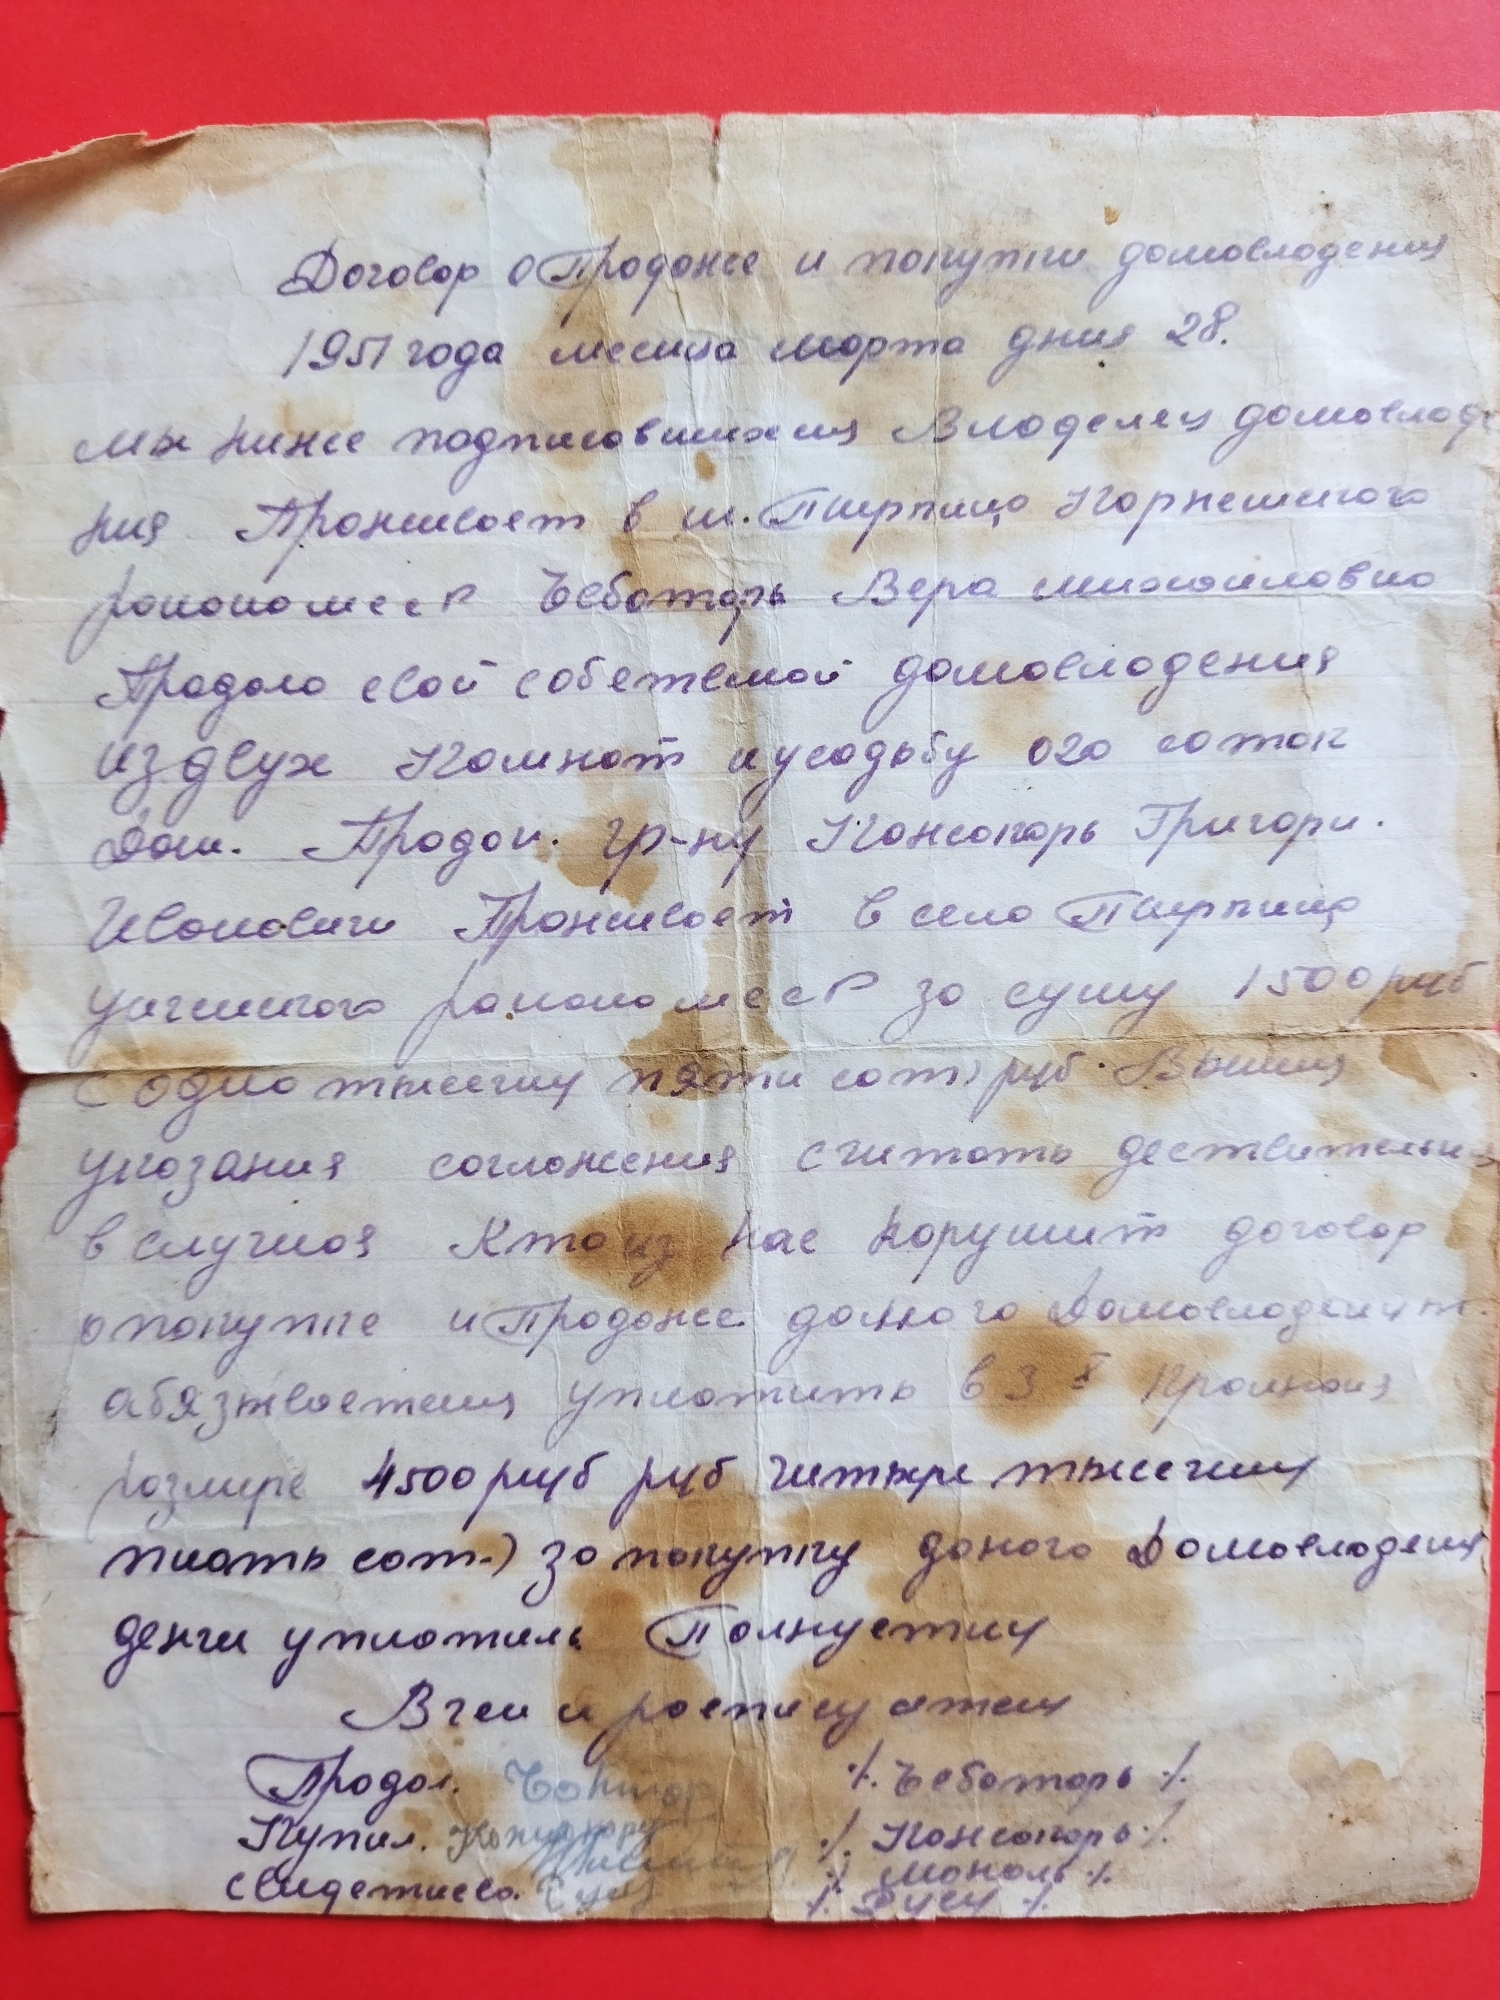 Договор о Продаже и покупки домовладения
1951 года месица марта дния 28.
мы ниже подписовшихися Владелец домовладе
ния Проживает в с. Пырлица Корнештского
района МССР Чеботарь Вера михаиловна
Продала свой собствемой домовладения
из двух Комнат и усадьбу 020 соток
Дом. Продан. гр-ну Кожокарь Григори.
Иванович Проживает в село Пырлица
Унгенского района МССР за суму 1500 руб
(одна тысечу пяти сот) руб. Высши
указания соглажения считать действительны
в случиоя Кто из нас нарушит договор
о покупке и Продаже даного Домовладения
абязываетсия уплатить в 3 х кратная
размире 4500 руб руб читыре тысечи
пиать сот.) за покупку даного Домовладения
денги уплатиль Полнустию
В чем и росписуемся
Продал. ·/. Чеботарь ·/.
Купил. Кожокару ·/. Кожокарь ·/.
Свидетиева. Русу ·/. Маноль ·/.
·/. Русу ·/.